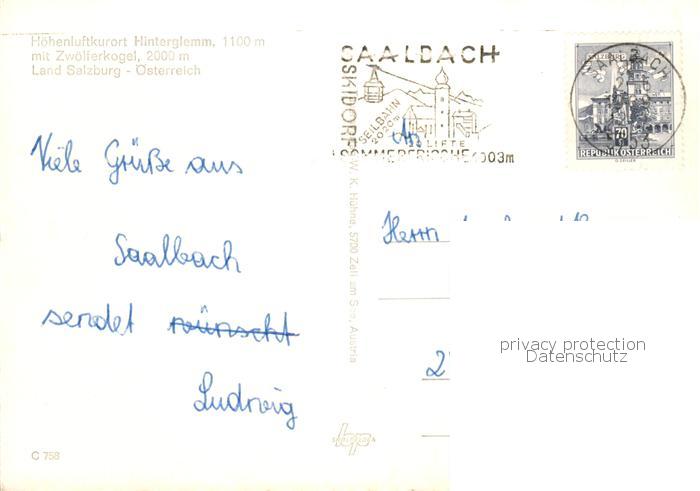 Höhenluftkurort Hinterglemm, 1100 m
mit Zwölferkogel, 2000 m
Land Salzburg - Österreich
SAALBACH
SKIDORF
SEILBAHN
2030m
LIFTE
SOMMERFRISCHE 1003m
SALZBURG
SAALBACH
70
REPUBLIK ÖSTERREICH
Viele Grüße aus
Saalbach
sendet wünscht
Ludwig
W. K. Hühne, 5700 Zell am See, Austria
Herrn
privacy protection
Datenschutz
C 758